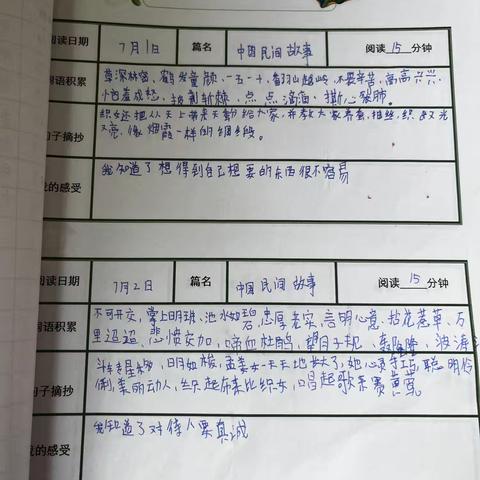 阅读日期 7月1日 篇名 中国民间故事 阅读15分钟
词语积累 草深林密、鹤发童颜、一五一十、翻山越岭、不畏辛苦、高高兴兴、
恼羞成怒、披荆斩棘、点点滴滴、撕心裂肺。
句子摘抄 织女还把从天上带来天蚕分给大家,并教大家养蚕,抽丝,织出又光
又亮,像烟霞一样的绸缎。
我的感受 我知道了想得到自己想要的东西很不容易
阅读日期 7月2日 篇名 中国民间故事 阅读15分钟
词语积累 不可开交、掌上明珠、池水如碧、忠厚老实、言明心意、拈花惹草、万
里迢迢、悲愤交加、啼血杜鹃、望月子规、轰隆隆、波涛
句子摘抄 斗转星移,日月如梭,孟姜女一天天地长大了,她心灵手巧,聪明伶
俐,美丽动人,织起布来比织女,唱起歌来赛黄莺
我的感受 我知道了对待人要真诚